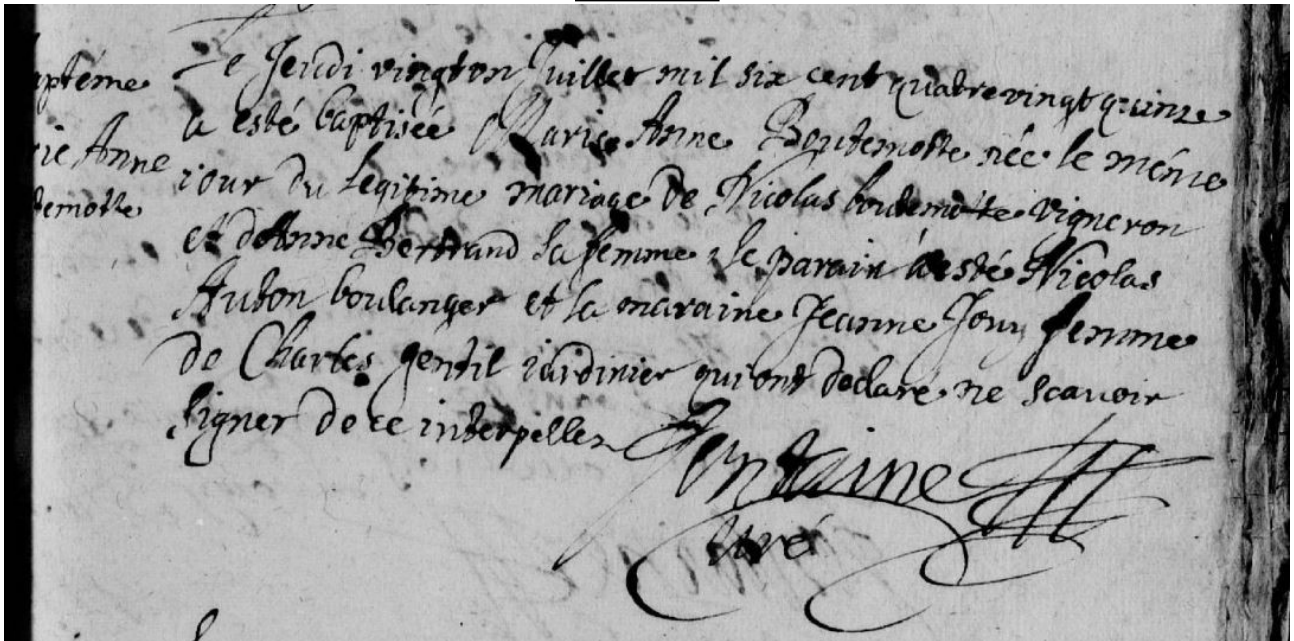 aptéme
rie Anne
temotte
Le Jeudi vingt un Juillet mil six cent quatre vingt quinze
a esté baptisée Marie Anne Boutemotte née le méme
jour du legitime mariage de Nicolas boutemotte vigneron
et de Anne Bertrand sa femme, le parain a esté Nicolas
Aubon boulanger et la maraine Jeanne Jouy femme
de Charles gentil iardinier qui ont declaré ne scavoir
signer de ce interpellez
Fontaine
Curé